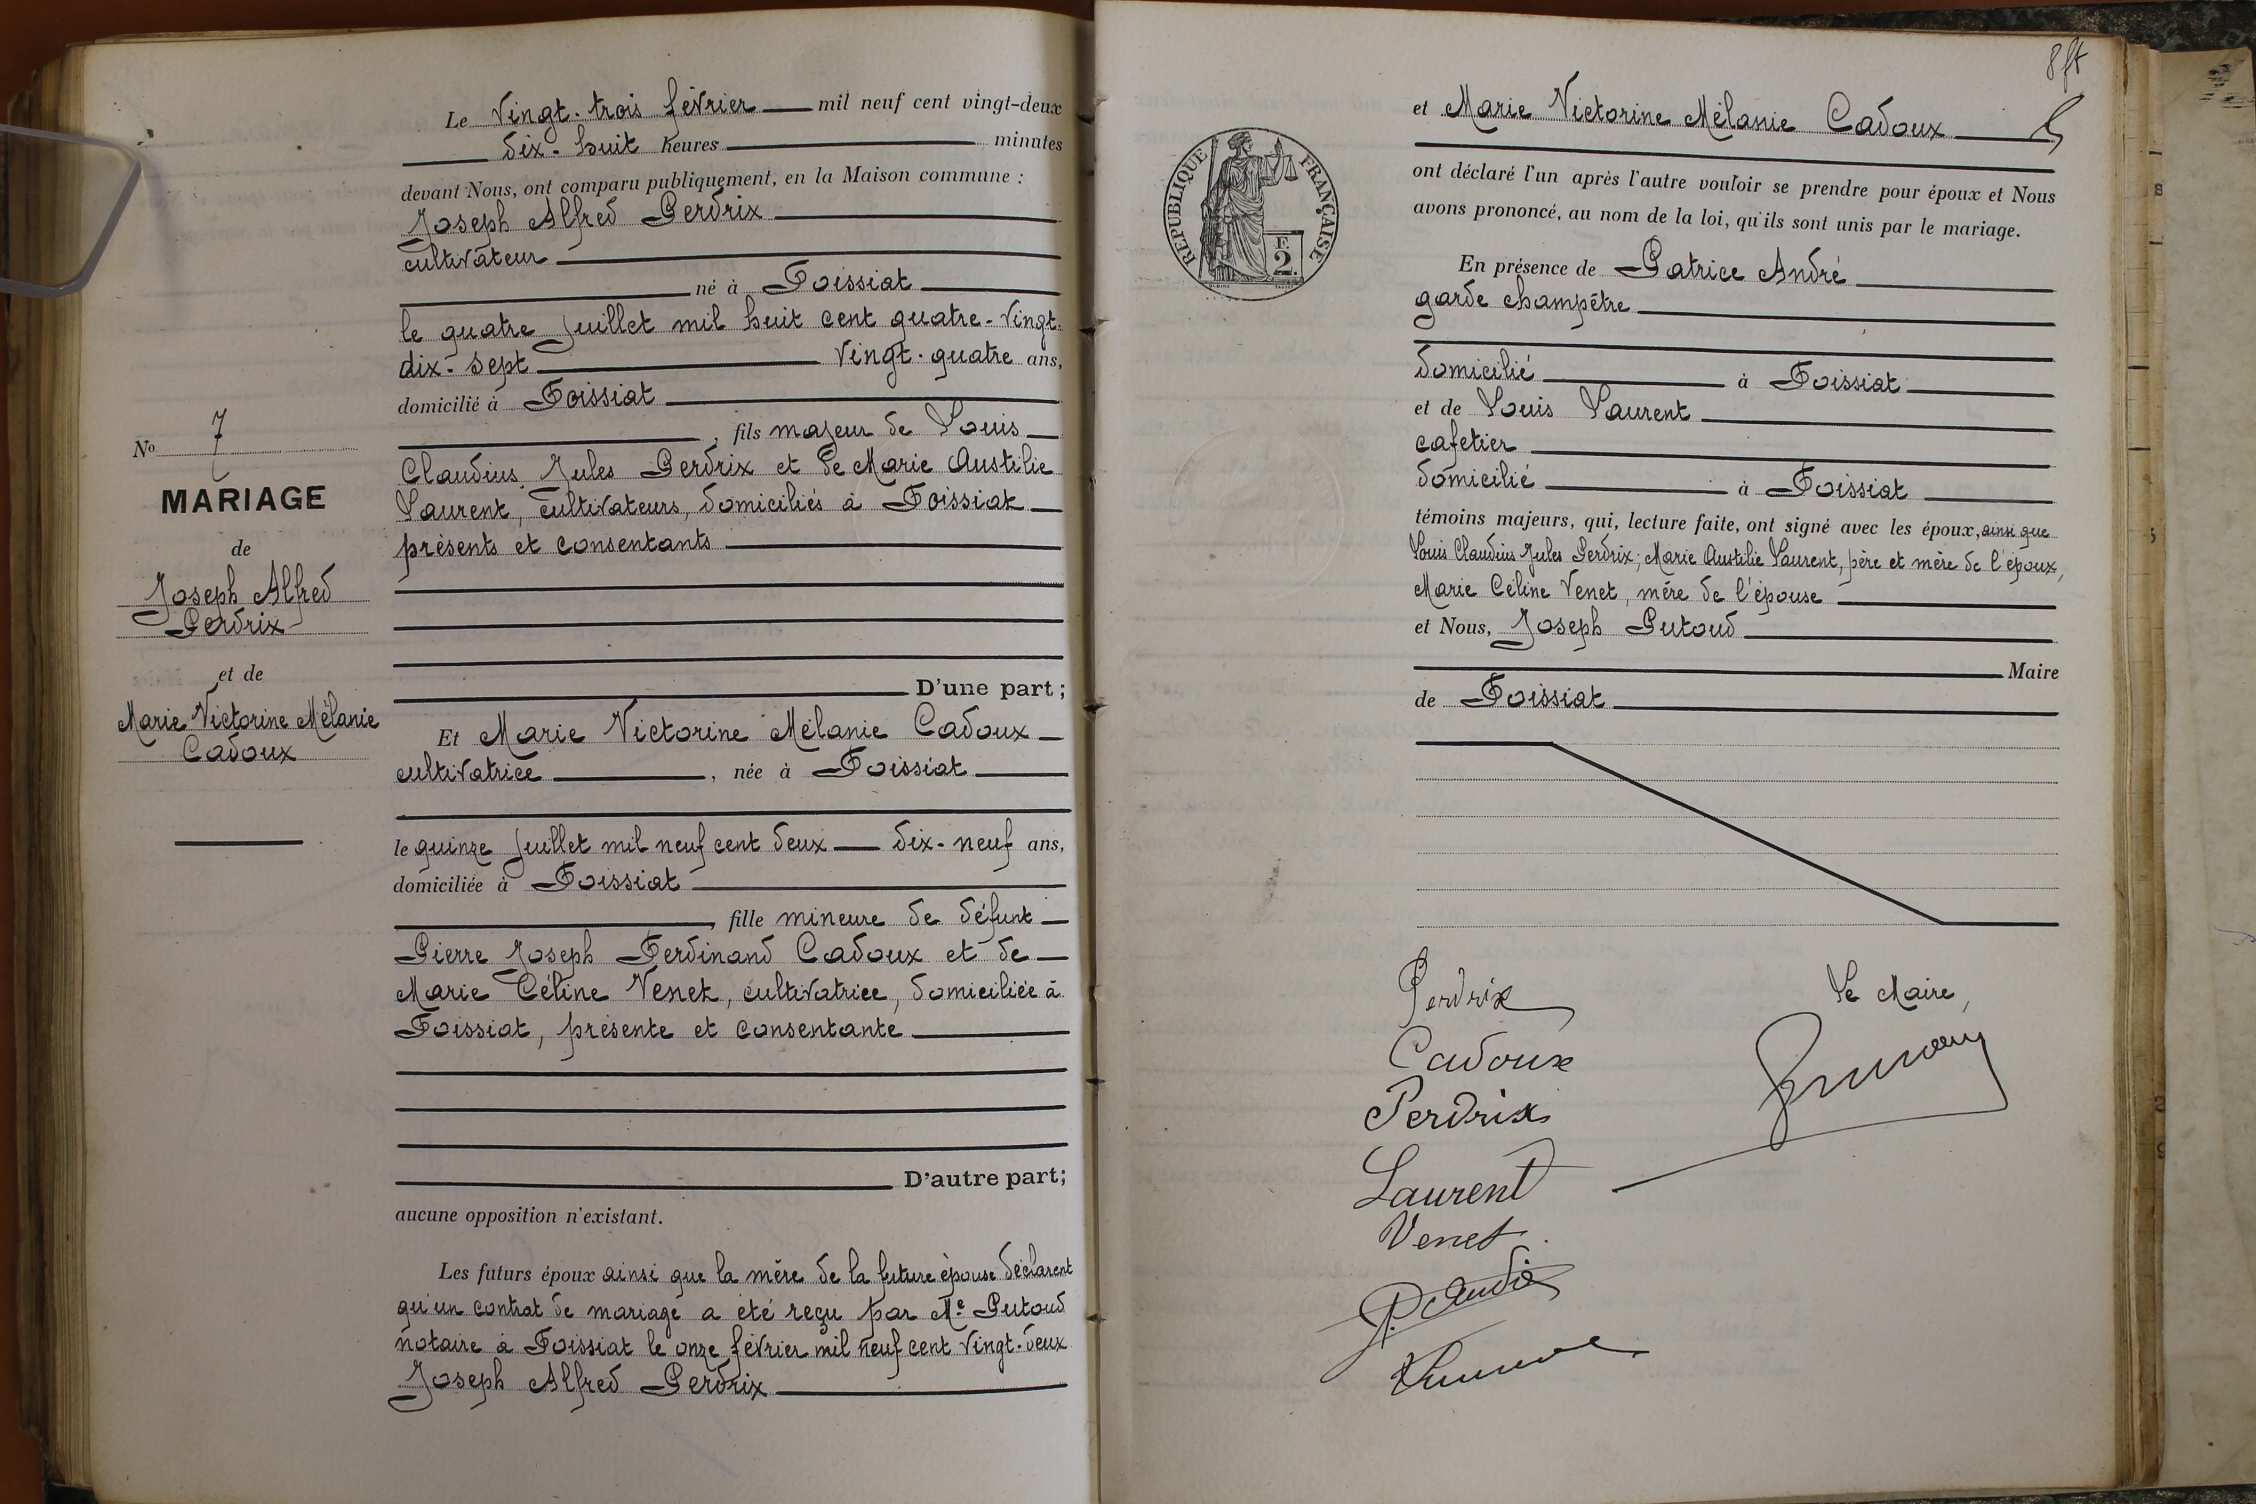 Le vingt-trois février mil neuf cent vingt-deux
dix-huit heures minutes
devant Nous, ont comparu publiquement, en la Maison commune :
Joseph Alfred Perdrix
cultivateur
né à Foissiat
le quatre Juillet mil huit cent quatre-vingt-
dix-sept vingt-quatre ans,
domicilié à Foissiat
, fils majeur de Louis
Claudius Jules Perdrix et de Marie Austilie
Laurent, cultivateurs, domiciliés à Foissiat
présents et consentants
D'une part ;
Et Marie Victorine Mélanie Cadoux
cultivatrice , née à Foissiat
le quinze Juillet mil neuf cent deux dix-neuf ans,
domiciliée à Foissiat
, fille mineure de défunt
Pierre Joseph Ferdinand Cadoux et de
Marie Céline Venet, cultivatrice, domiciliée à
Foissiat, présente et consentante
D'autre part;
aucune opposition n'existant.
Les futurs époux ainsi que la mère de la future épouse déclarent
qu'un contrat de mariage a été reçu par Me Putoud
notaire à Foissiat le onze février mil neuf cent vingt-deux
Joseph Alfred Perdrix
No 7
MARIAGE
de
Joseph Alfred
Perdrix
et de
Marie Victorine Mélanie
Cadoux
8
et Marie Victorine Mélanie Cadoux
ont déclaré l'un après l'autre vouloir se prendre pour époux et Nous
avons prononcé, au nom de la loi, qu'ils sont unis par le mariage.
En présence de Patrice André
garde champêtre
domicilié à Foissiat
et de Louis Laurent
cafetier
domicilié à Foissiat
témoins majeurs, qui, lecture faite, ont signé avec les époux, ainsi que
Louis Claudius Jules Perdrix; Marie Austilie Laurent, père et mère de l'époux,
Marie Céline Venet, mère de l'épouse
et Nous, Joseph Putoud
Maire
de Foissiat
RÉPUBLIQUE FRANÇAISE
F.
2.
Perdrix
Cadoux
Perdrix
Laurent
Venet
P. André
Le Maire,